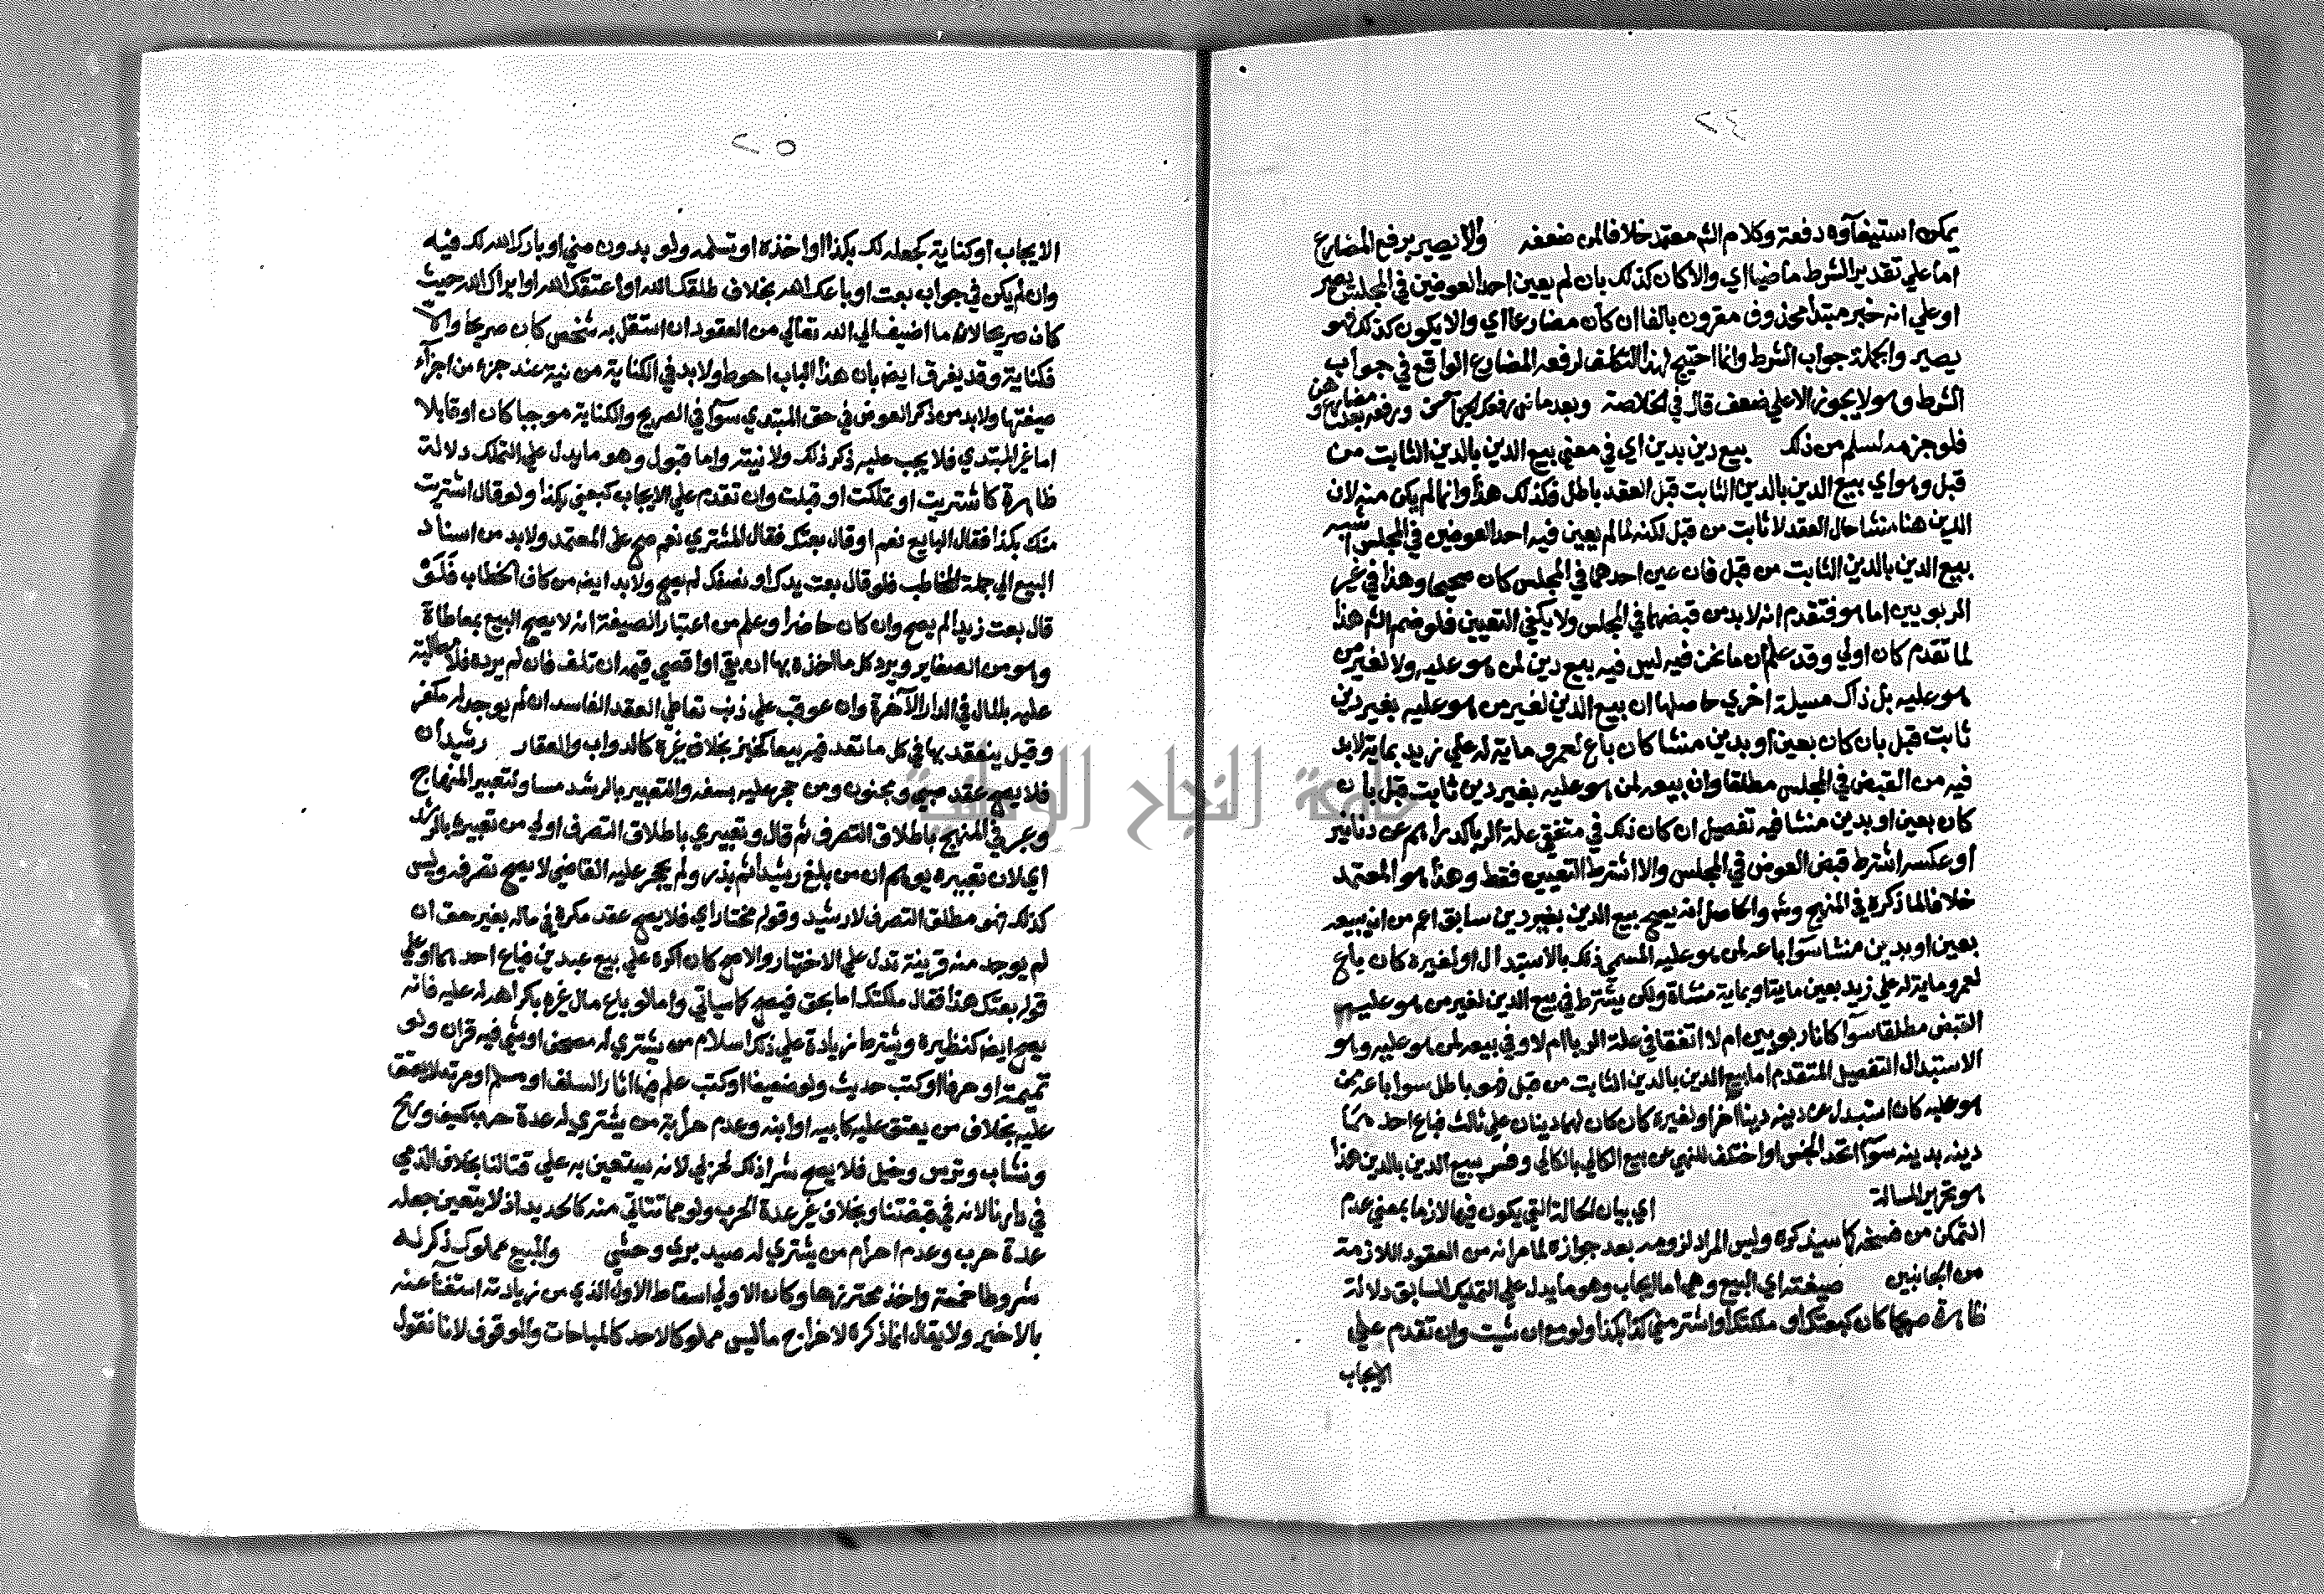 ٢٤
يمكن استيفاوه دفعة وكلام الشم معتمد خلافا لمن ضعفه والا يصير برفع المضارع
اما علي تقدير الشرط ماضيا اي والا كان كذلك بان لم يعين احد العوضين في المجلس يصير
او علي انه خبر مبتدا محذوف مقرون بالفا ان كان مضارعا اي والا يكون كذلك فهو
يصير والجملة جواب الشرط وانما احتيج لهذا التكلف لرفعه المضارع الواقع في جواب
الشرط وهو لا يجوز الا علي ضعف قال في الخلاصة وبعد ماض رفعك الجزا حسن ورفعه بعد مضارع وهن
فلو جزمه لسلم من ذلك بيع دين بدين اي في معني بيع الدين بالدين الثابت من
قبل وهو اي بيع الدين بالدين الثابت قبل العقد باطل فكذلك هذا وانما لم يكن منه لان
الدين هنا منشا حال العقد لا ثابت من قبل لكنه لما لم يعين فيه احد العوضين في المجلس اشبه
بيع الدين بالدين الثابت من قبل فان عين احدهما في المجلس كان صحيحا وهذا في غير
الربويين اما هو فتقدم انه لا بد من قبضهما في المجلس ولا يكفي التعيين فلو ضم الشم هذا
لما تقدم كان اولي وقد علم ان ما نحن فيه ليس فيه بيع دين لمن هو عليه ولا لغير من
هو عليه بل ذاك مسيلة اخري حاصلها ان بيع الدين لغير من هو عليه بغير دين
ثابت قبل بان كان بعين او بدين منشا كان باع لعمرو ماية له علي زيد بماية لا بد
فيه من القبض في المجلس مطلقا وان بيعه لمن هو عليه بغير دين ثابت قبل بان
كان بعين او بدين منشا فيه تفصيل ان كان ذلك في متفقي علة الربا كدراهم عن دنانير
او عكسه اشترط قبض العوض في المجلس والا اشترط التعيين فقط وهذا هو المعتمد
خلافا لما ذكره في المنهج وشه والحاصل انه يصح بيع الدين بغير دين سابق اعم من ان يبيعه
بعين او بدين منشا سوا باعه لمن هو عليه المسمي ذلك بالاستبدال او لغيره كان باع
لعمرو ماية له علي زيد بعين ماية او بماية منشاة ولكن يشترط في بيع الدين لغير من هو عليه
القبض مطلقا سوا كانا ربويين ام لا اتفقا في علة الربا ام لا وفي بيعه لمن هو عليه وهو
الاستبدال التفصيل المتقدم اما بيع الدين بالدين الثابت من قبل فهو باطل سوا باعه لمن
هو عليه كان استبدل عن دينه دينا اخر او لغيره كان كان لهما دينان علي ثالث فباع احدهما
دينه بدينه سوا اتحد الجنس او اختلف للنهي عن بيع الكالي بالكالي وفسر ببيع الدين بالدين هذا
هو تحرير المسالة اي بيان الحالة التي يكون فيها لازما بمعني عدم
التمكن من فسخه كما سيذكره وليس المراد لزومه بعد جوازه لما مر انه من العقود اللازمة
من الجانبين صيغته اي البيع وهي اما ايجاب وهو ما يدل علي التمليك السابق دلالة
ظاهرة صريحا كان كبعتك او ملكتك او اشتر مني كذا بكذا ولو مع ان شيت وان تقدم علي
الايجاب
٢٥
الايجاب او كناية كجعلته لك بكذا او اخذه او تسلمه ولو بدون مني او بارك الله لك فيه
وان لم يكن في جواب بعت او باعك الله بخلاف طلقك الله او اعتقك الله او ابراك الله حيث
كان صريحا لان ما اضيف الي الله تعالي من العقود ان استقل به شخص كان صريحا والا
فكناية وقد يفرق ايضا بان هذا الباب احوط ولا بد في الكناية من نية عند جزء من اجزآء
صيغتها ولا بد من ذكر العوض في حق المبتدي سوآ في الصريح والكناية موجبا كان او قابلا
اما غير المبتدي فلا يجب عليه ذكر ذلك ولا نيته واما قبول وهو ما يدل علي التملك دلالة
ظاهرة كاشتريت او تملكت او قبلت وان تقدم علي الايجاب كبعني بكذا ولو قال اشتريت
منك بكذا فقال البايع نعم او قال بعتك فقال المشتري نعم صح علي المعتمد ولا بد من اسناد
البيع الي جملة المخاطب فلو قال بعت يدك او نصفك لم يصح ولا بد ايضا من كاف الخطاب فلو
قال بعت زيدا لم يصح وان كان حاضرا وعلم من اعتبار الصيغة انه لا يصح البيع بمعاطاة
وهو من الصغاير ويرد كل ما اخذه بها ان بقي او اقصي قيمه ان تلف فان لم يرده فلا مطالبة
عليه بالمال في الدار الآخرة وان عوقب علي ذنب تعاطي العقد الفاسد ان لم يوجد له مكفر
وقيل ينعقد بها في كل ما تعد فيه بيعا كخبز بخلاف غيره كالدواب والعقار رشيدان
فلا يصح عقد صبي ومجنون ومن حجر عليه بسفه والتعبير بالرشد مساو لتعبير المنهاج
وعبر في المنهج باطلاق التصرف ثم قال وتعبيري باطلاق التصرف اولي من تعبيره بالرشد
اي لان تعبيره يوهم ان من بلغ رشيدا ثم بذر ولم يحجر عليه القاضي لا يصح تصرفه وليس
كذلك فهو مطلق التصرف لا رشيد وقوله مختار اي فلا يصح عقد مكره في ماله بغير حق ان
لم يوجد منه قرينة تدل علي الاختيار والا صح كان اكره علي بيع عبدين فباع احدهما او علي
قوله بعتك هذا فقال ملكتك اما بحق فيصح كما سياتي واما لو باع مال غيره باكراهه له عليه فانه
يصح ايضا كنظيره ويشترط زيادة علي ذكر اسلام من يشتري له مصحف او شي فيه قران ولو
تميمة او حرفا او كتب حديث ولو ضعيفا او كتب علم فيها اثار السلف او مسلم او مرتد لا يعتق
عليه بخلاف من يعتق عليه كابيه او ابنه وعدم حرابة من يشتري له عدة حرب كسيف ورمح
ونشاب وترس وخيل فلا يصح شرا ذلك لحربي لانه يستعين به علي قتالنا بخلاف الذمي
في دارنا لانه في قبضتنا وبخلاف غير عدة الحرب ولو مما تتاتي منه كالحديد اذ لا يتعين جعله
عدة حرب وعدم احرام من يشتري له صيد بري وحشي والمبيع مملوك ذكر له
شروطا خمسة واخذ محترزها وكان الاولي اسقاط الاول الذي من زيادته استغنآ عنه
بالاخير ولا يقال انما ذكره لاخراج ما ليس مملوكا لاحد كالمباحات والموقوف لانا نقول
جامعة النجاح الوطنية